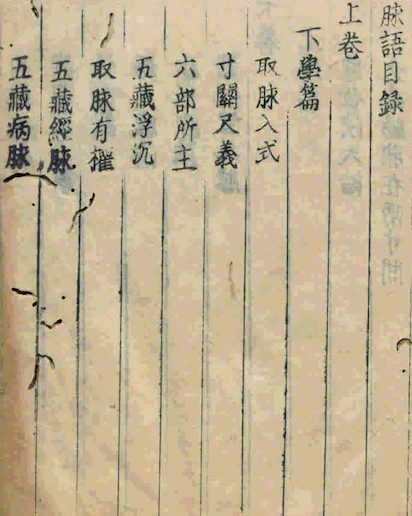 脉語目録
上卷
下學篇
取脉入式
寸關尺義
六部所主
五藏浮沉
取脉有權
五藏經脉
五藏病脉